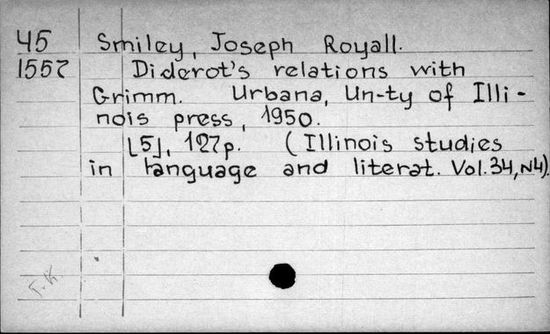 45 Smiley, Joseph Royall.
1557 Diderot's relations with
Grimm. Urbana, Un-ty of Illi-
nois press, 1950.
[5], 127p. (Illinois studies
in language and literat. Vol.34, N4).
Г.К.